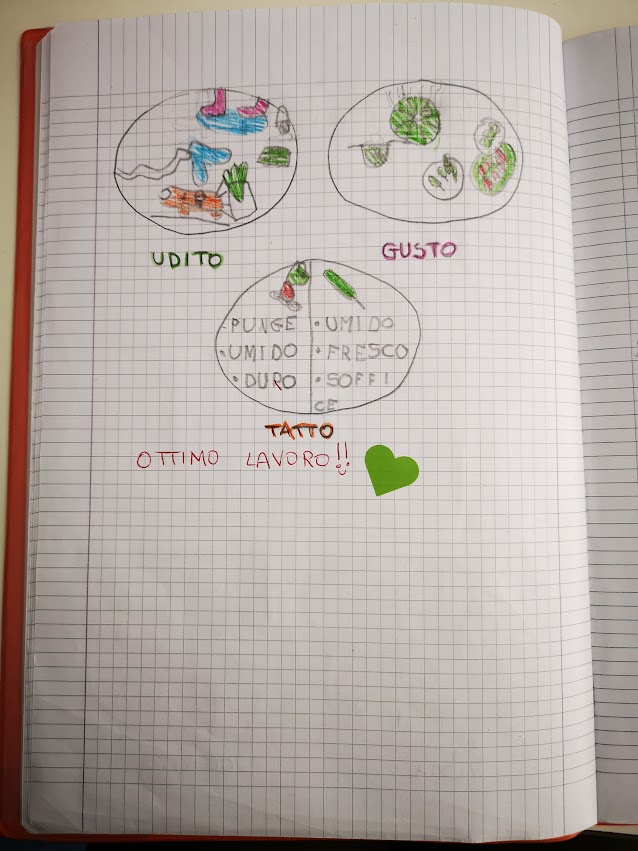 UDITO
GUSTO
• PUNGE
• UMIDO
• DURO
• UMIDO
• FRESCO
• SOFFI
CE
TATTO
OTTIMO LAVORO!!